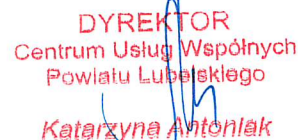 DYREKTOR
Centrum Usług Wspólnych
Powiatu Lubelskiego
Katarzyna Antoniak